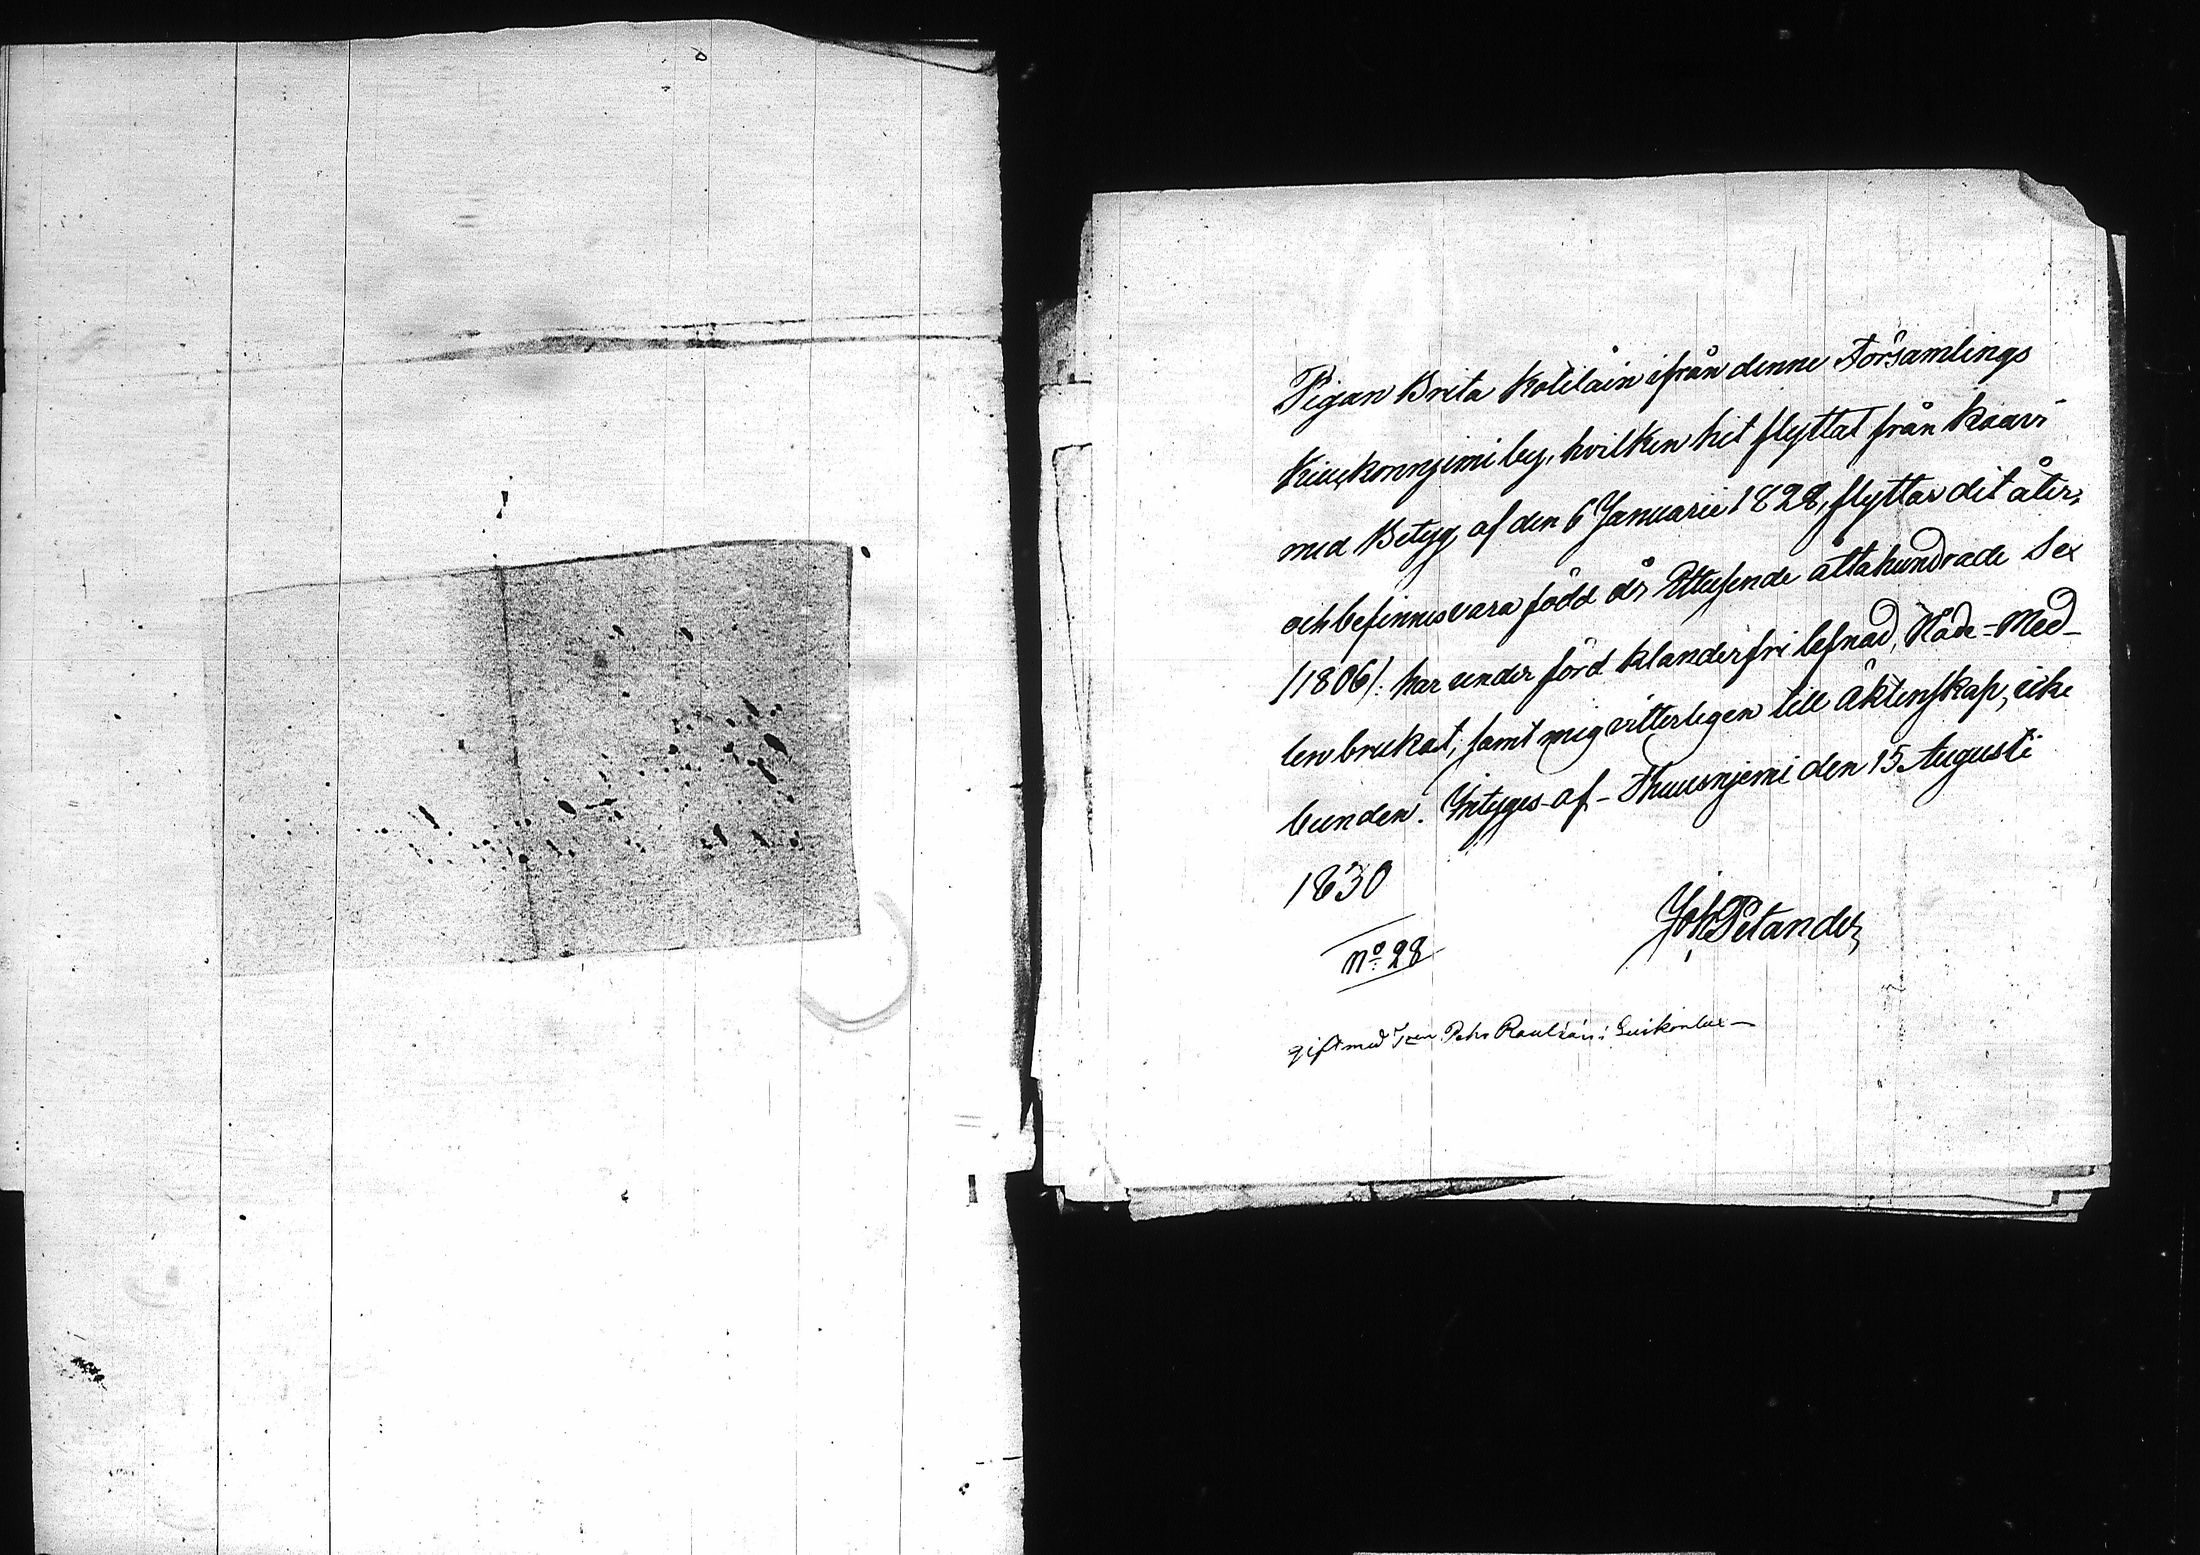 Pigan Brita Kotilain ifrån denne Församlings
by, hvilken hit flyttat från Kaavi
med Betyg af den 6 Januarii 1828, flyttar dit åter,
och befinnes vara född år Ettusende åttahundrade Sex
/1806/: har under förd klanderfri lefnad, Nåde-Med-
len brukat, samt mig vitterligen till Äktenskap, icke
bunden. Intyges af Thuusnjemi den 15 Augusti
1830
Joh Petander
No 28
gift med Pehr i